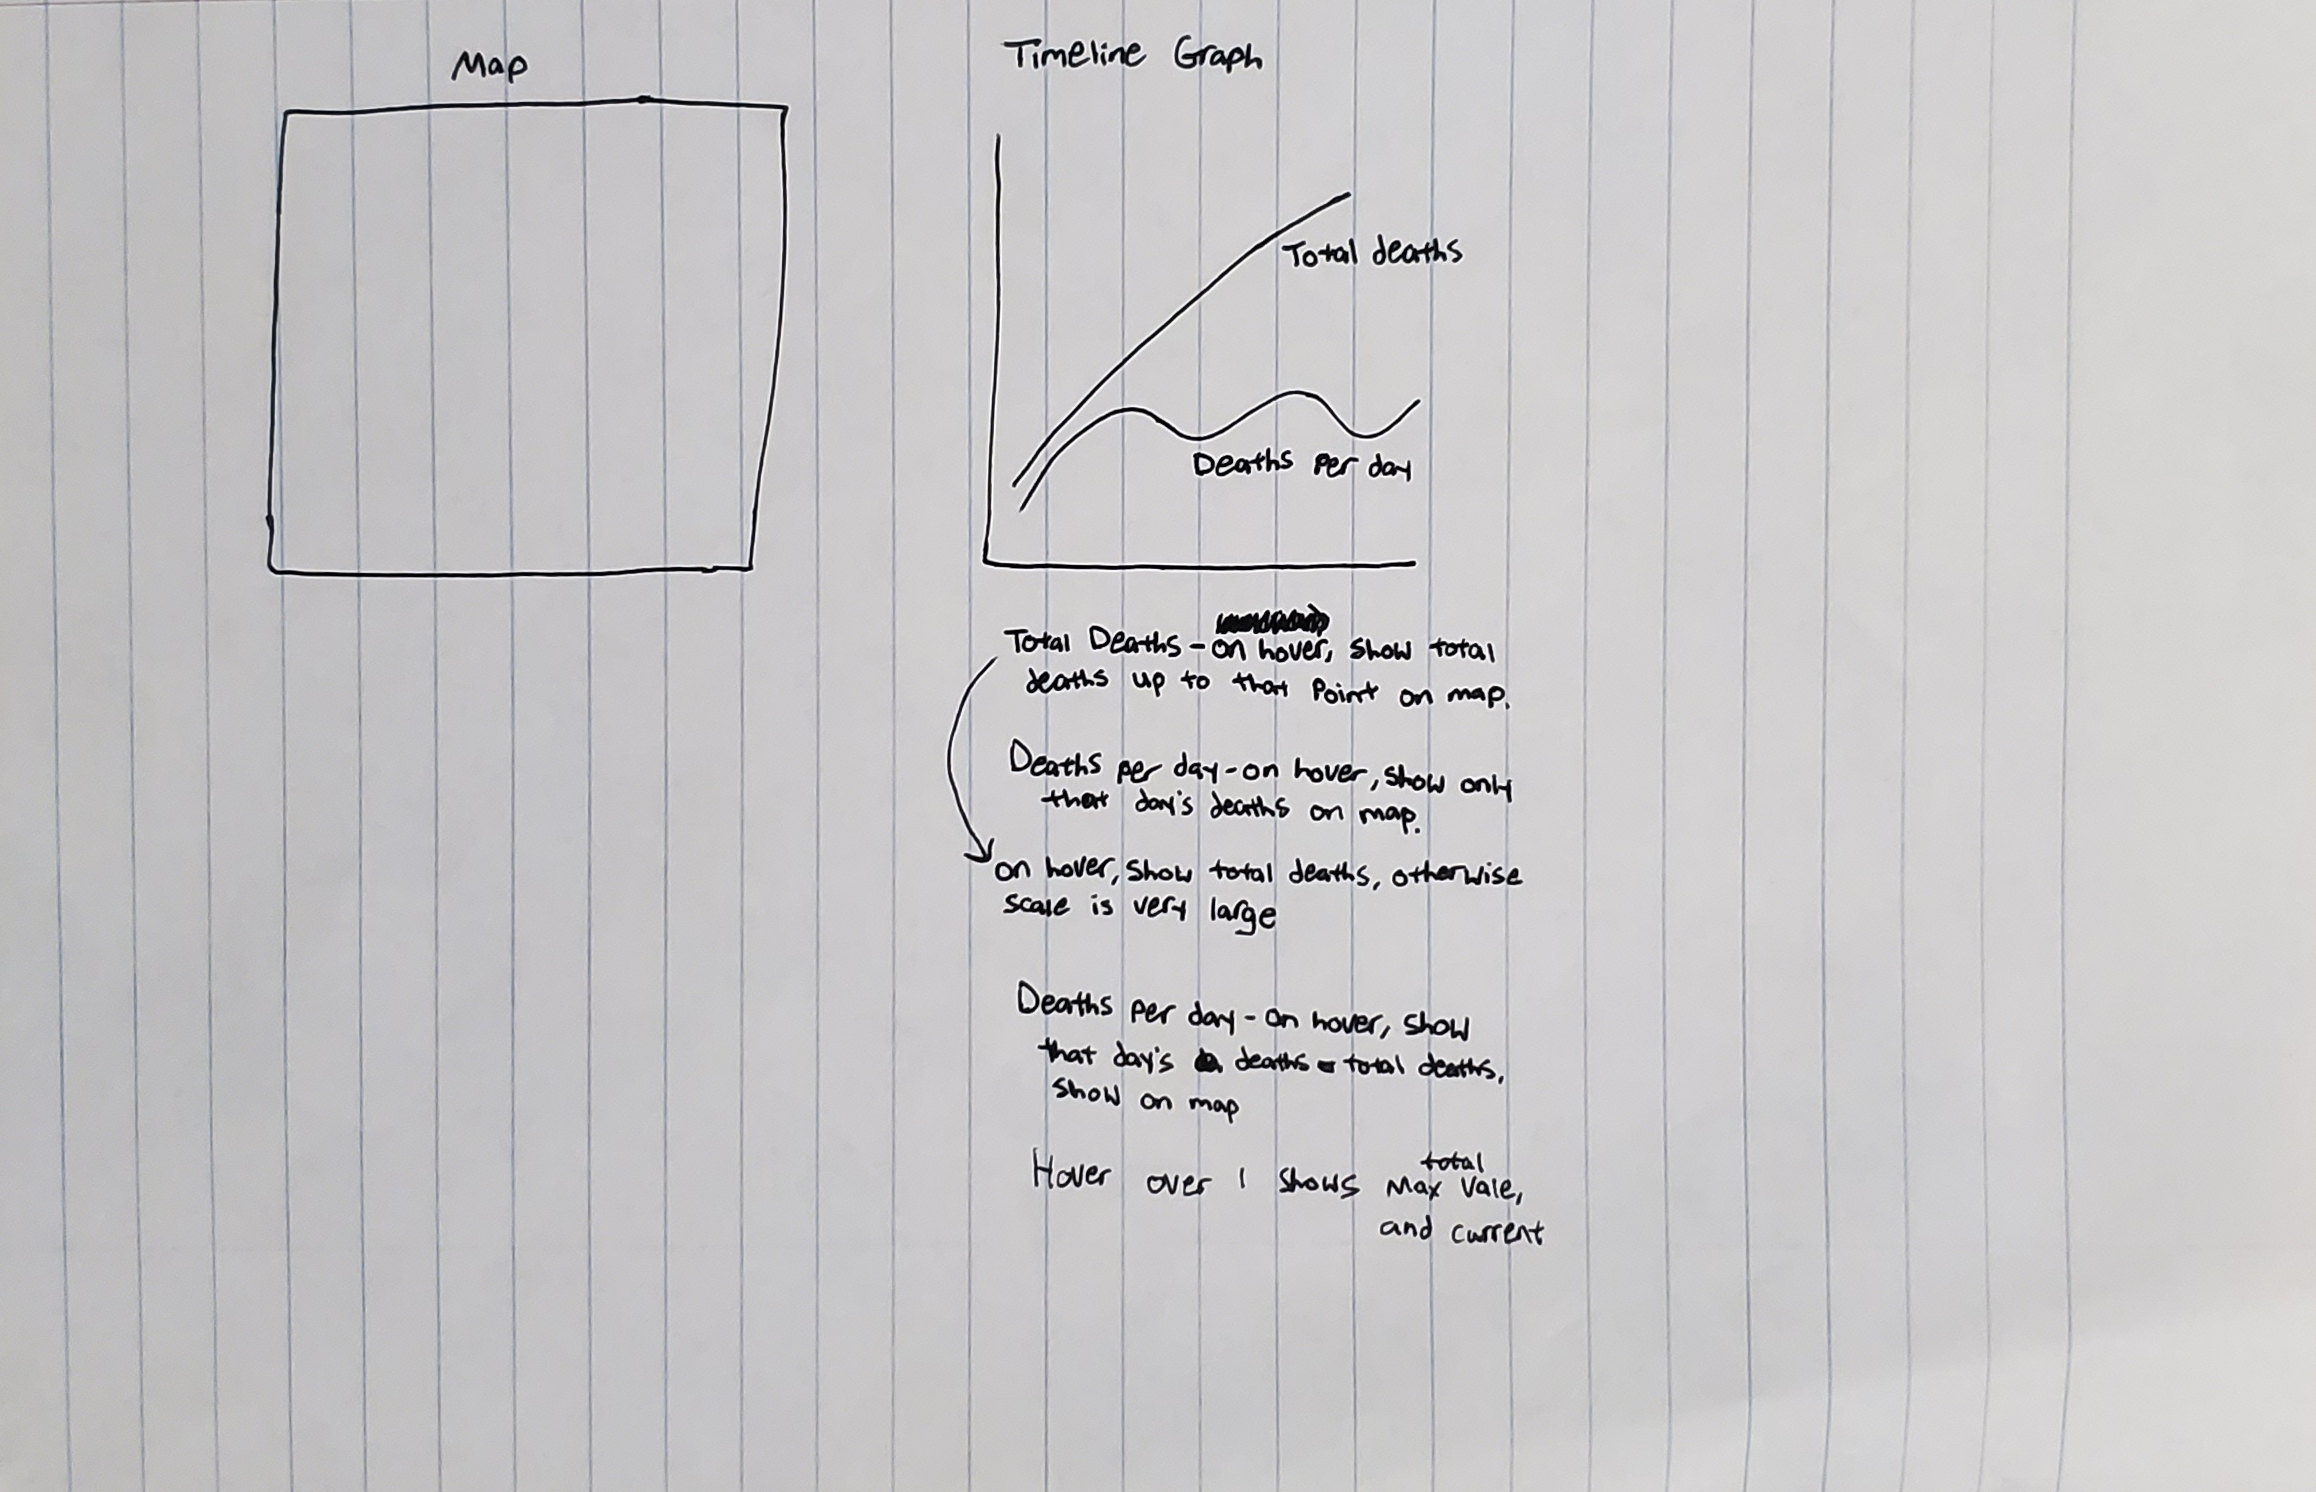 Map
Timeline Graph
Total deaths
Deaths per day
Total Deaths - on hover, show total
deaths up to that point on map.
Deaths per day - on hover, show only
that day's deaths on map.
on hover, show total deaths, otherwise
scale is very large
Deaths per day - on hover, show
that day's deaths - total deaths,
show on map
Hover over 1 shows max vale,
total
and current